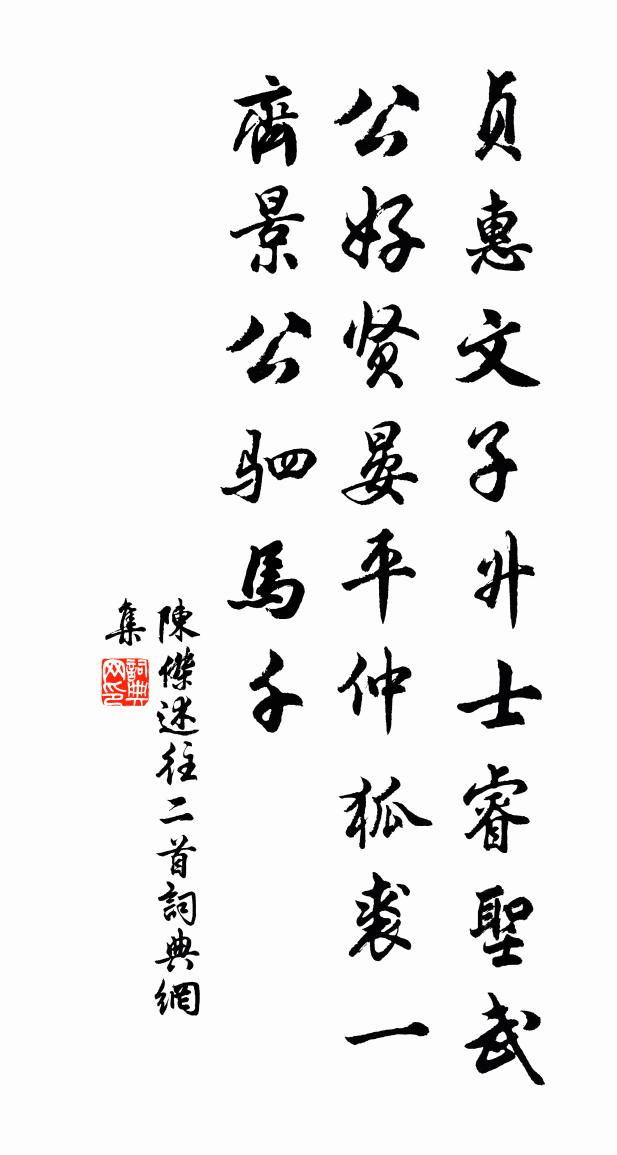 贞惠文子升士睿聖武
公好贤晏平仲狐裘一
齊景公驷馬千
陳傑述往二首詞典網
集
詞典网印